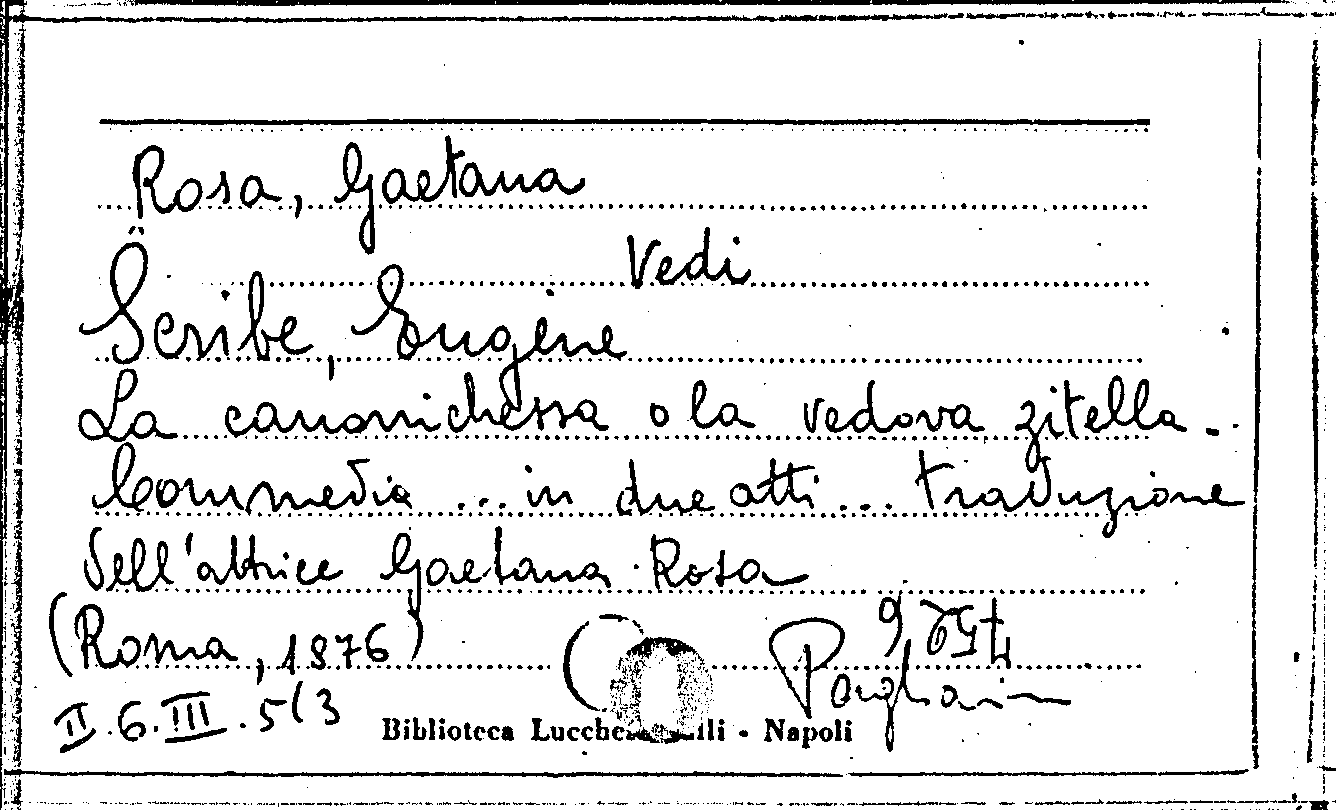 Rosa, Gaetana
Vedi
Scribe, Eugène
La canonichessa o la vedova zitella..
Commedia ... in due atti ... traduzione
dell'attrice Gaetana Rosa
(Roma, 1876)
II.6.III.5(3
Biblioteca Lucchesi Palli - Napoli